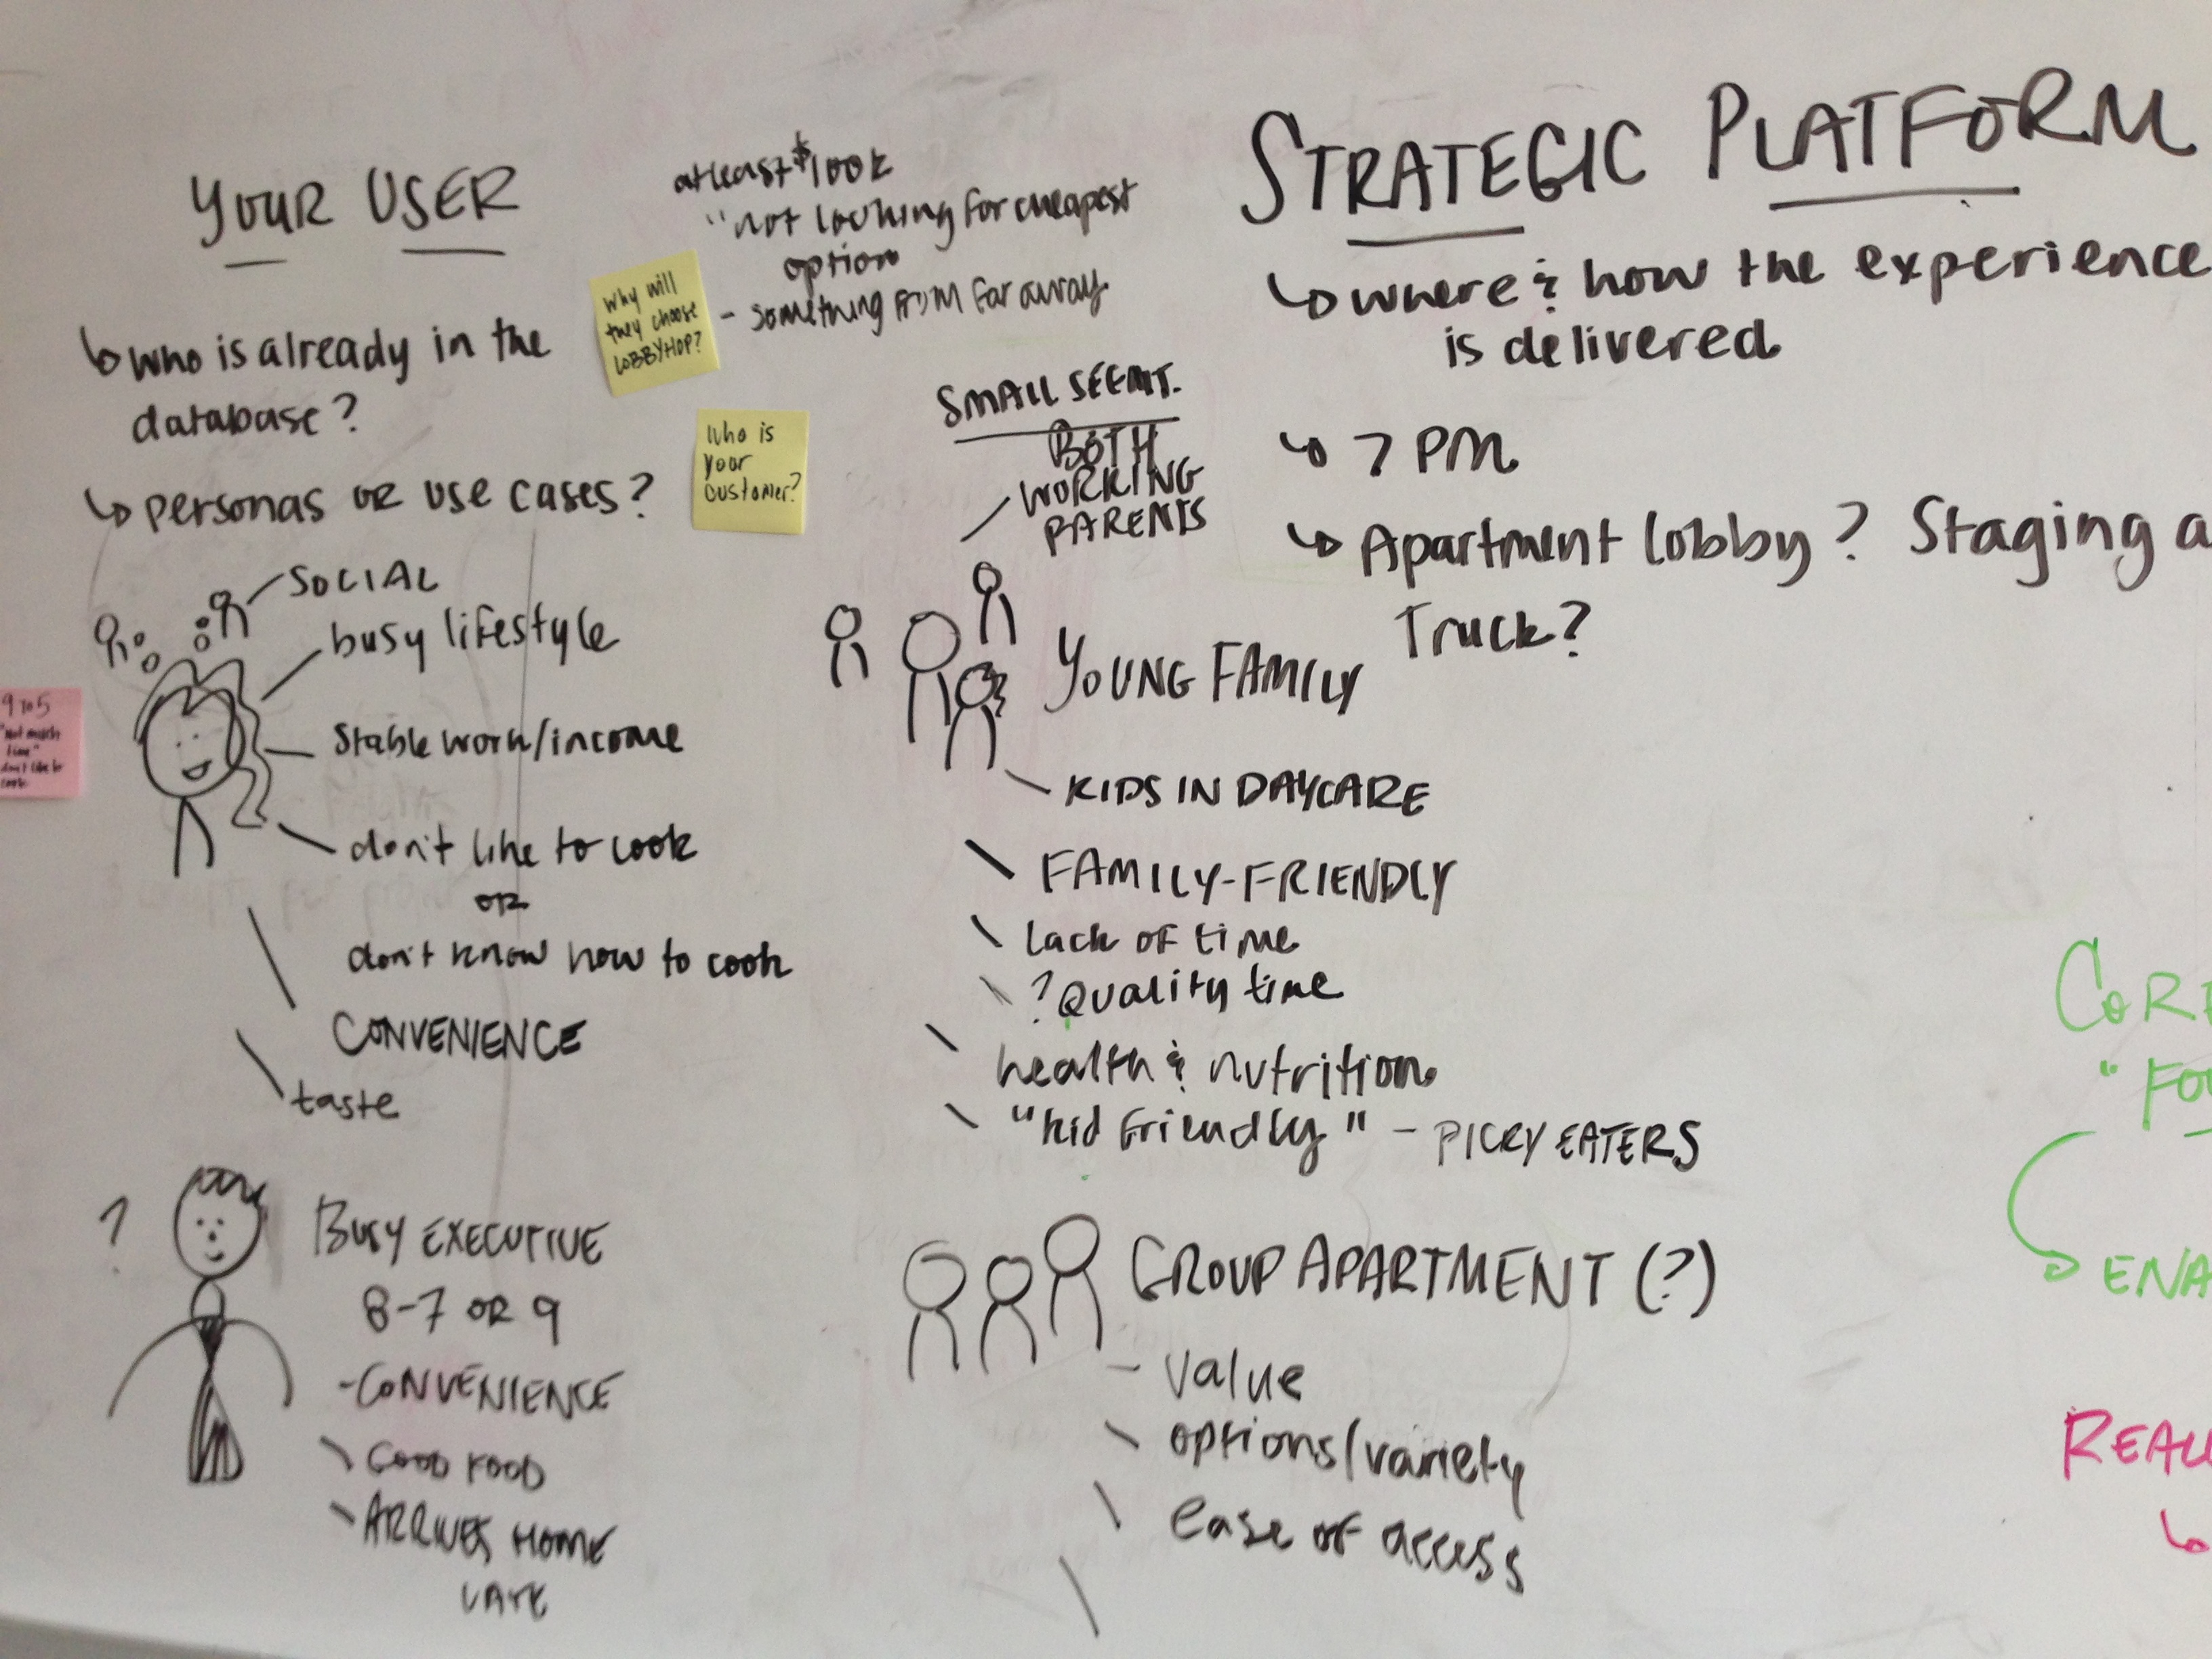 YOUR USER
↳ who is already in the
database?
↳ personas or use cases?
Why will
they choose
LOBBYHOP?
at least $100k
"not looking for cheapest
option
- something from far away
Who is
your
customer?
SOCIAL
busy lifestyle
stable work/income
don't like to cook
OR
don't know how to cook
CONVENIENCE
taste
9 to 5
"Not much
time"
don't like to
cook
?
BUSY EXECUTIVE
8-7 OR 9
- CONVENIENCE
GOOD FOOD
ARRIVES HOME
LATE
SMALL SEGMT.
BOTH
WORKING
PARENTS
YOUNG FAMILY
KIDS IN DAYCARE
FAMILY-FRIENDLY
lack of time
? Quality time
health & nutrition
"kid friendly" - PICKY EATERS
GROUP APARTMENT (?)
- value
options/variety
ease of access
STRATEGIC PLATFORM
↳ where & how the experience
is delivered
↳ 7 PM
↳ Apartment lobby? Staging a
Truck?
CORE
"FO
ENA
REAL